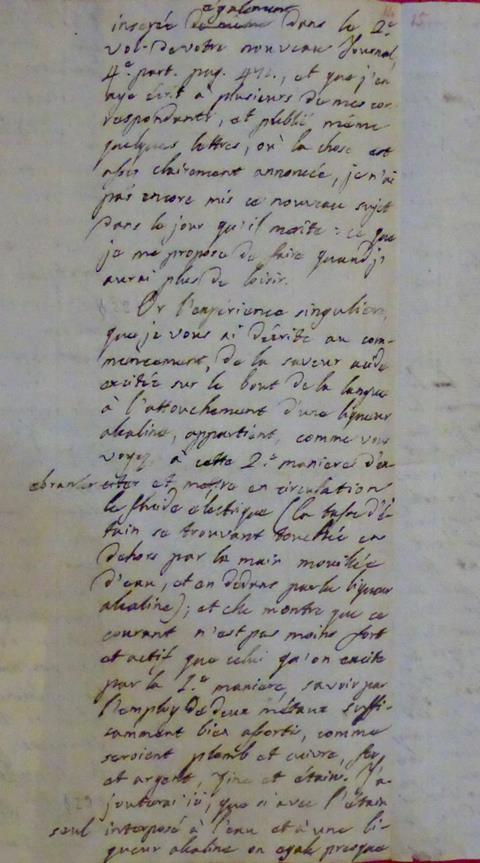 également 15
inserée de même dans le 2.e
vol. de votre nouveau Journal,
4.e part. pag. 471., et que j'en
aye écrit à plusieurs de mes cor-
respondants, et publié même
quelques lettres, où la chose est
assés clairement annoncée, je n'ai
pas encore mis ce nouveau sujet
dans le jour qu'il merite: ce que
je me propose de faire quand j'
aurai plus de loisir.
Or l'expérience singuliere,
que je vous ai décrite au com-
mencement, de la saveur acide
excitée sur le bout de la langue
à l'attouchement d'une liqueur
alcaline, appartient, comme vous
voyez, à cette 2.e maniere d'ex-
ebranler citer et mettre en circulation
le fluide electrique (la tasse d'é-
tain se trouvant touchée en
dehors par la main mouillée
d'eau, et en dedans par la liqueur
alcaline); et elle montre que ce
courant n'est pas moins fort
et actif que celui qu'on excite
par la 1.e maniere, savoir par
l'employ de deux métaux suffi-
samment bien assortis, comme
seroient plomb et cuivre, fer
et argent, zinc et étain. J'a-
jouterai ici, que si avec l'étain
seul interposé à l'eau et à une li-
queur alcaline on egale presque